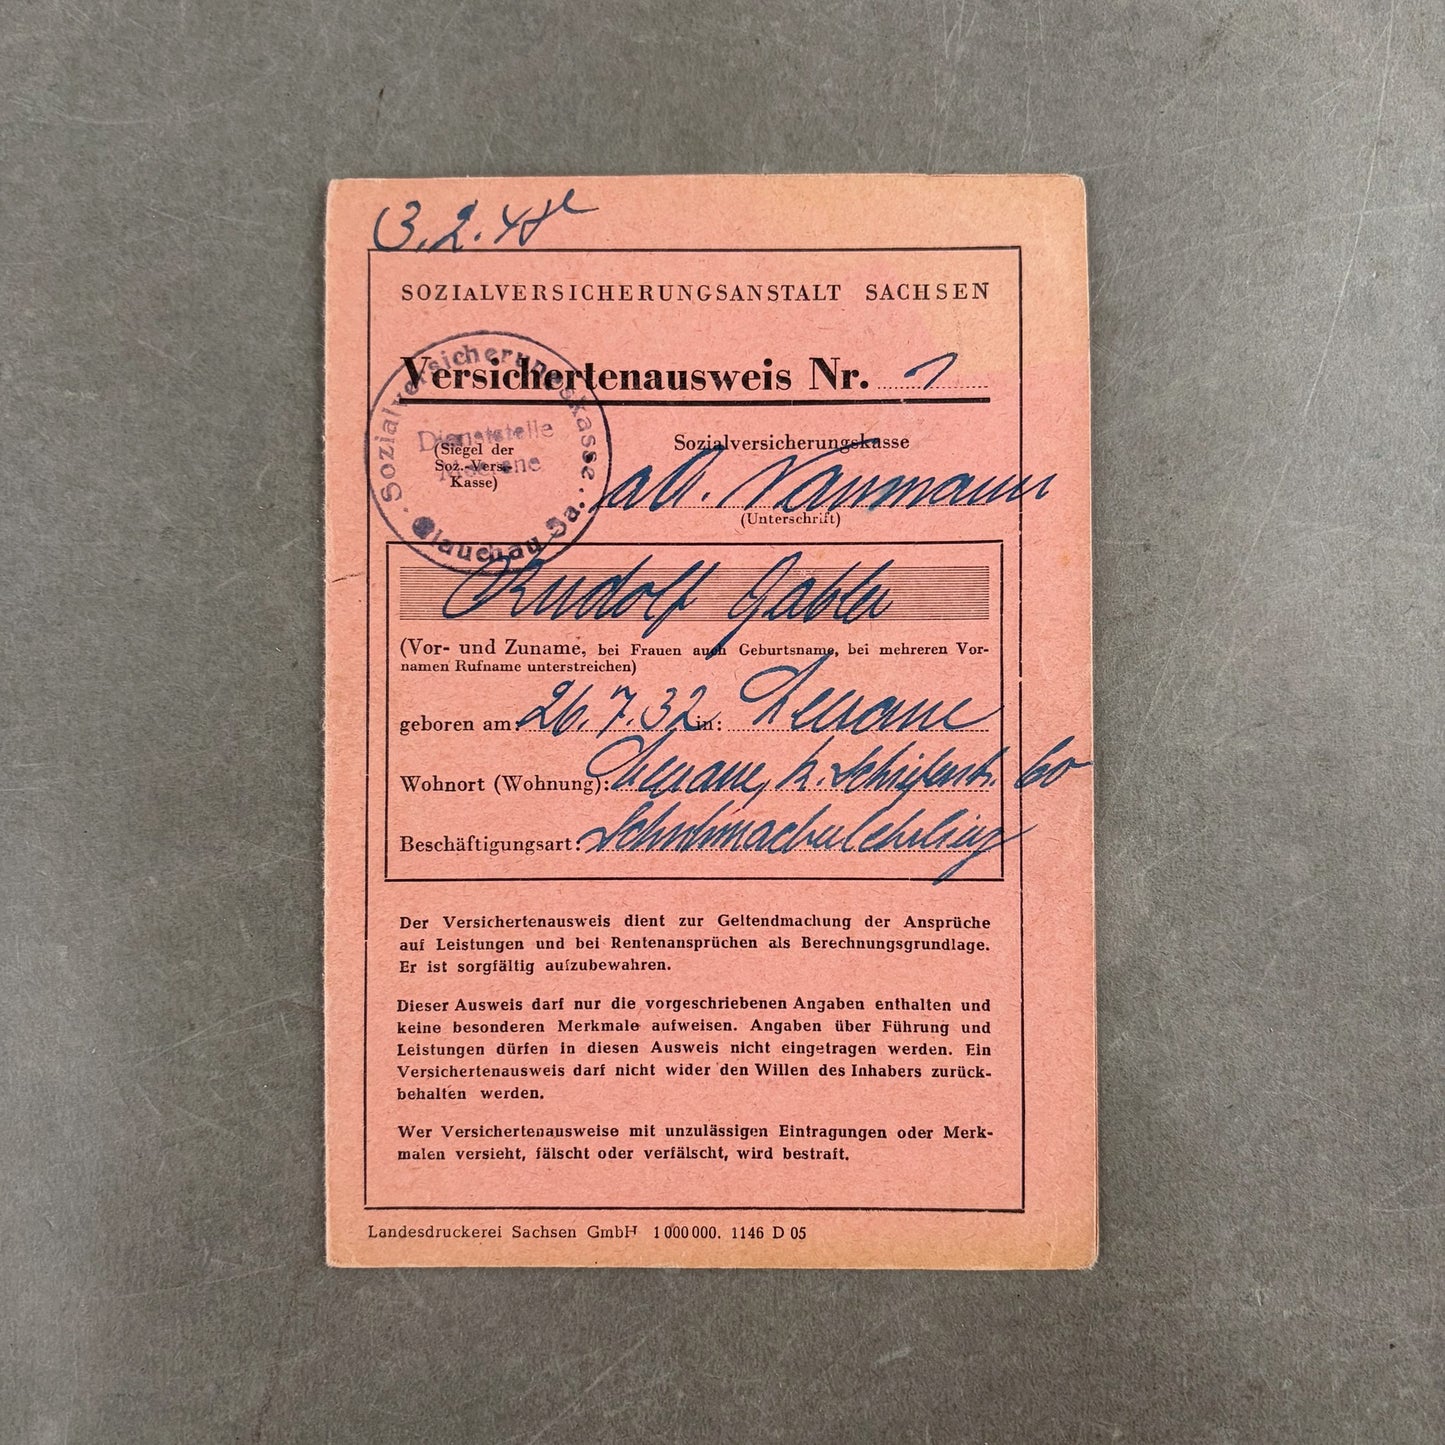 3.2.48
SOZIALVERSICHERUNGSANSTALT SACHSEN
Versichertenausweis Nr. 1
Sozialversicherungskasse
Glauchau Sa.
Dienststelle
Meerane
(Siegel der
Soz.-Vers.-
Kasse)
Sozialversicherungskasse
Naumann
(Unterschrift)
Rudolf Gabler
(Vor- und Zuname, bei Frauen auch Geburtsname, bei mehreren Vor-
namen Rufname unterstreichen)
geboren am: 26.7.32 in: Meerane
Wohnort (Wohnung): Meerane, 60
Beschäftigungsart: Schuhmacherlehrling
Der Versichertenausweis dient zur Geltendmachung der Ansprüche
auf Leistungen und bei Rentenansprüchen als Berechnungsgrundlage.
Er ist sorgfältig aufzubewahren.
Dieser Ausweis darf nur die vorgeschriebenen Angaben enthalten und
keine besonderen Merkmale aufweisen. Angaben über Führung und
Leistungen dürfen in diesen Ausweis nicht eingetragen werden. Ein
Versichertenausweis darf nicht wider den Willen des Inhabers zurück-
behalten werden.
Wer Versichertenausweise mit unzulässigen Eintragungen oder Merk-
malen versieht, fälscht oder verfälscht, wird bestraft.
Landesdruckerei Sachsen GmbH 1 000 000. 1146 D 05